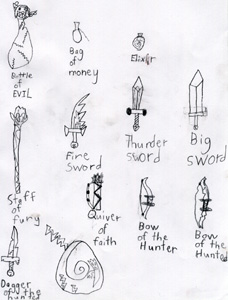 Bottle
of
EVIL
Bag
of
money
Elixir
Fire
Sword
Thunder
sword
Big
sword
Staff
of
fury
Quiver
of
faith
Bow
of the
Hunter
Bow
of the
Hunter
Dagger
of the
hunter